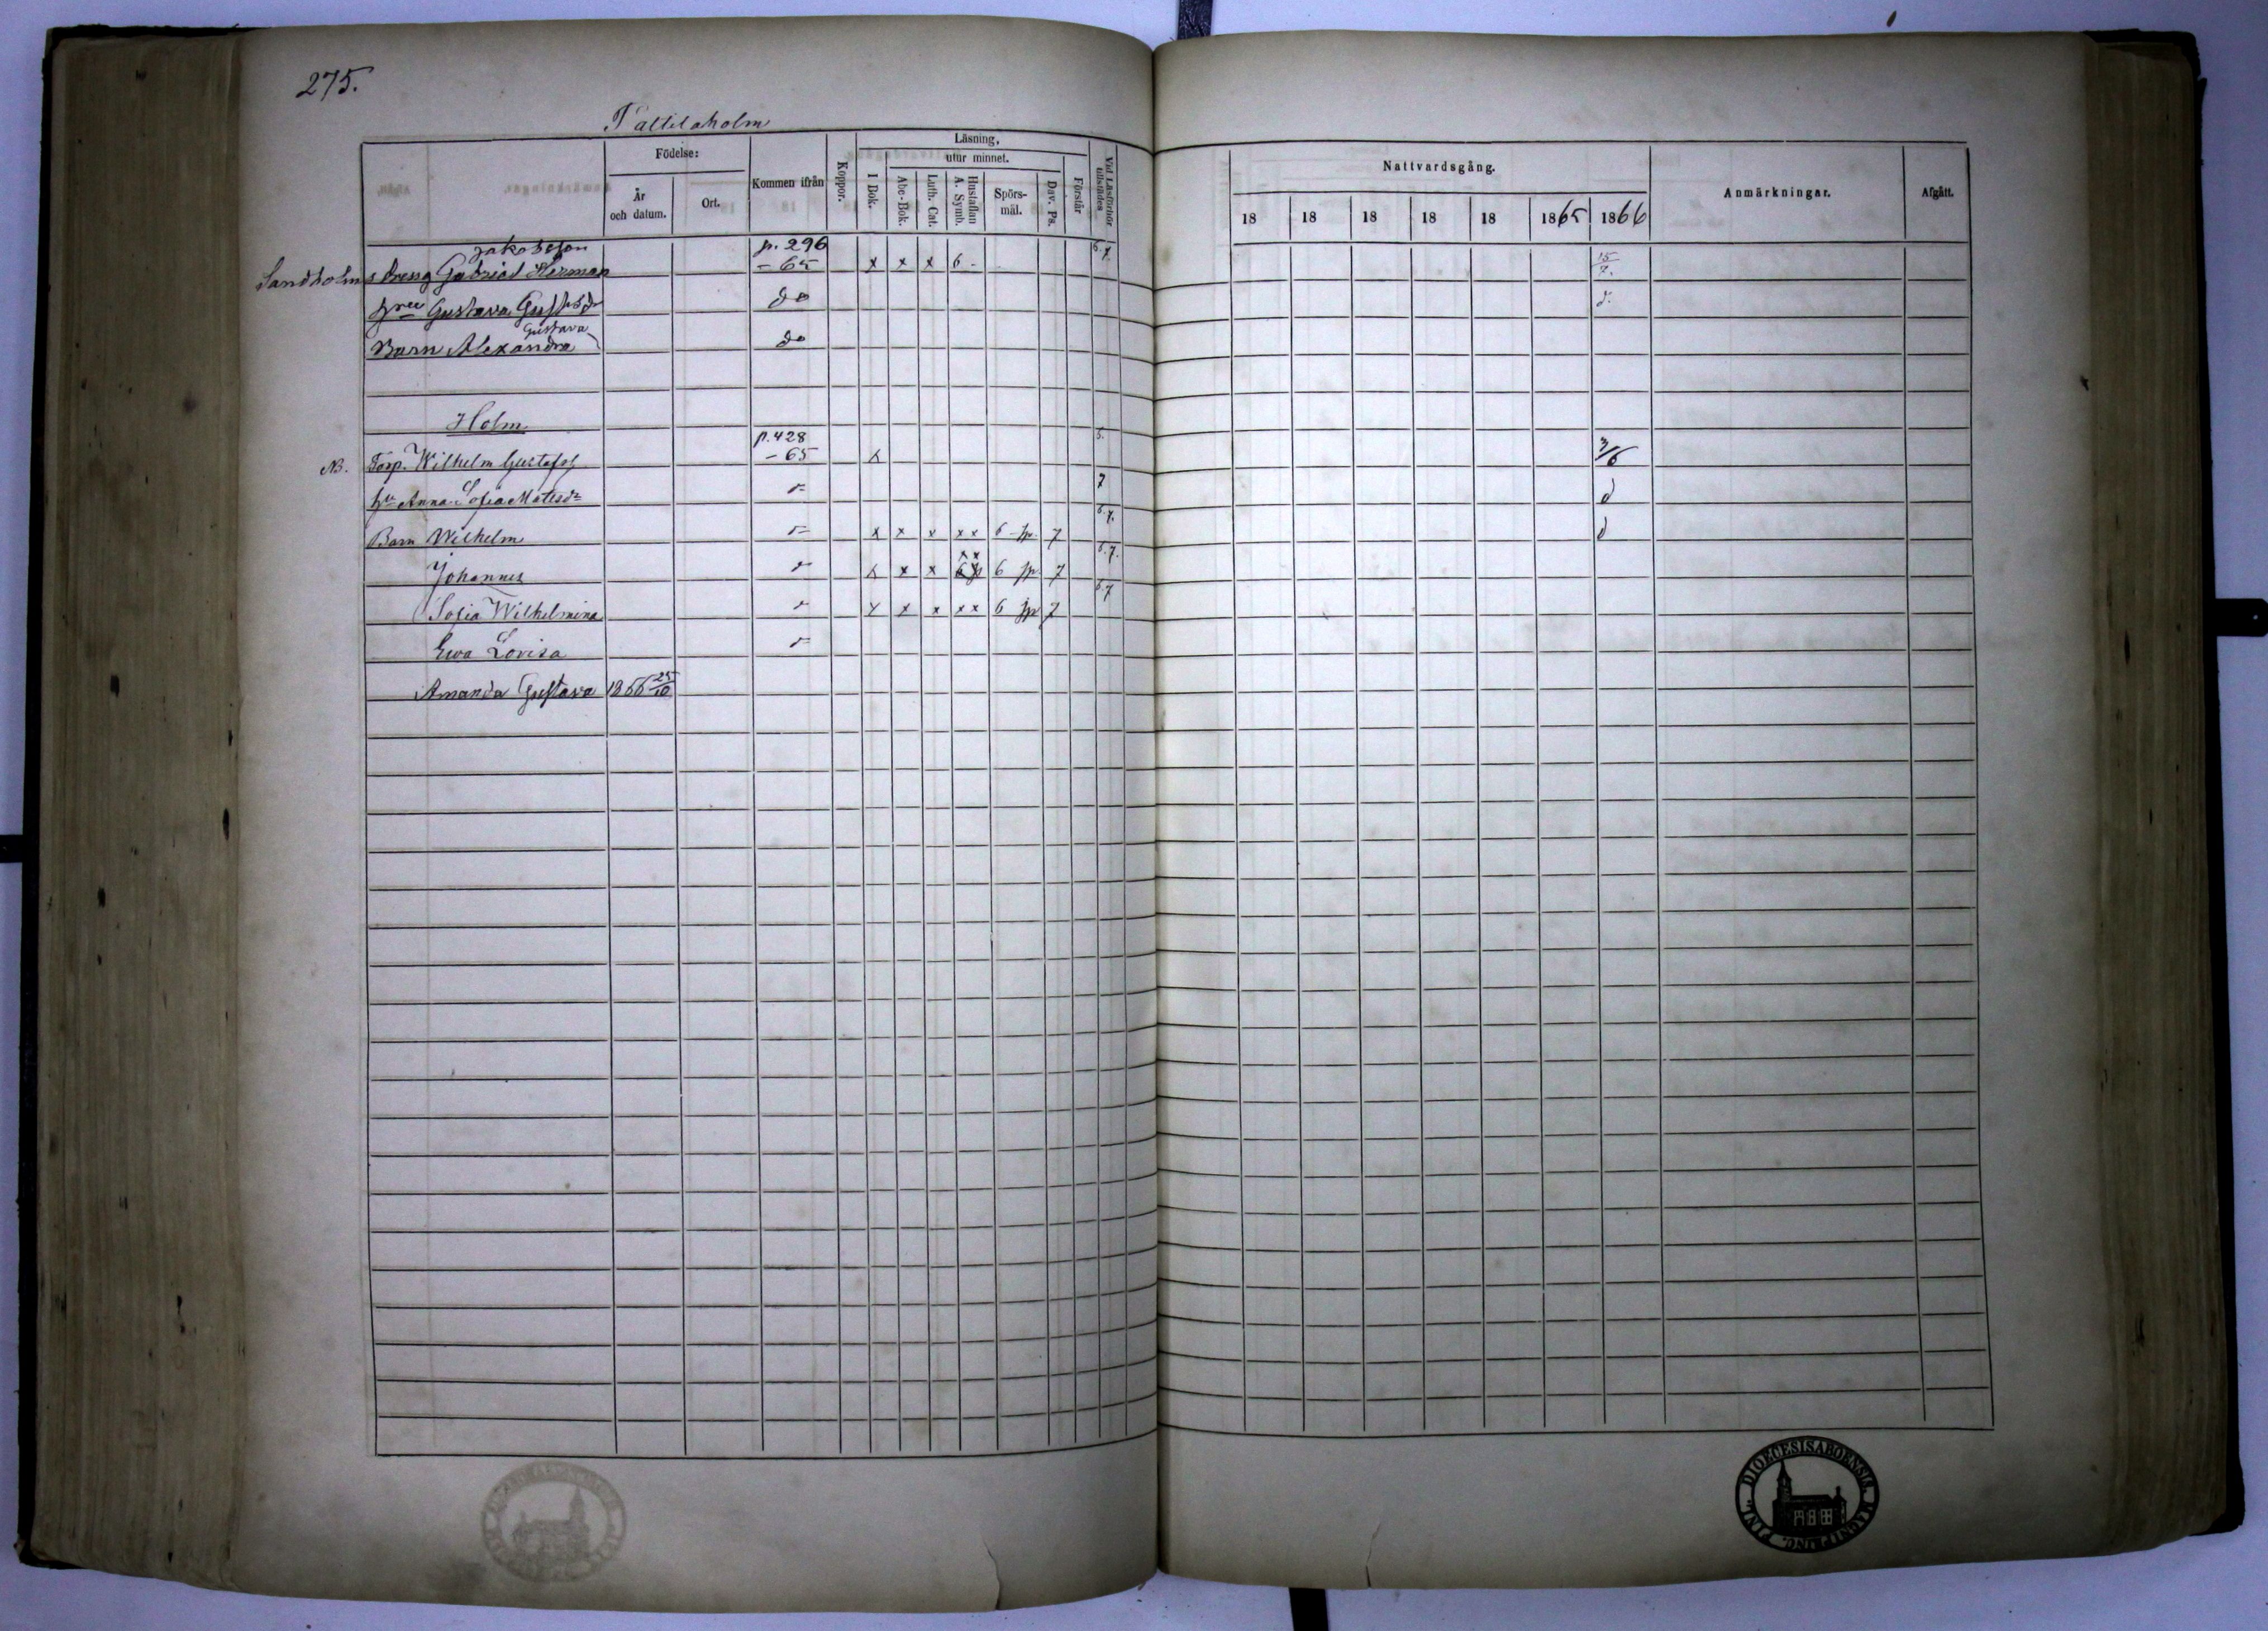 275.
Födelse:
Kommen ifrån
Koppor.
Läsning,
utur minnet.
Vid Läsförhör tillstädes
År och datum.
Ort.
I Bok.
Abc-Bok.
Luth. Cat.
Hustaflan A. Symb.
Spörs-mål.
Dav. Ps.
Förstår
Nattvardsgång.
Anmärkningar.
Afgått.
18 18 18 18 18 1865 1866
Jakobsson p. 296
Sandholms Gabriel Herman - 65 x x x 6 - 6.7 15/7.
Gustava do d.
Gustava
Barn Alexandra do
Holm
p. 428
NB. Torp. Wilhelm Gustafss - 65 x 6. 3/6
Anna Sofia Matsdr 7 d
Barn Wilhelm x x x x x 6 7 6.7. d
Johannes x x x 6 7 6.7.
Sofia Wilhelmina x x x x x 6 7 6.7
Ewa Lovisa
Amanda Gustava 1866 25/10
FINL. DIOECESIS ABOENSIS MAGNI PRINC.